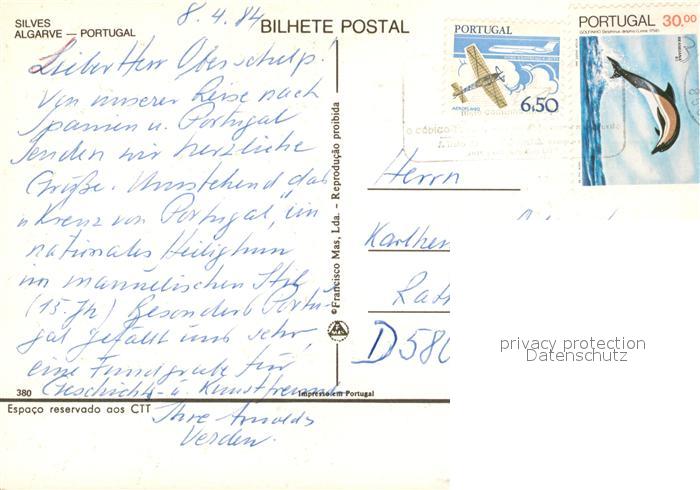 SILVES
ALGARVE — PORTUGAL
8.4.84
BILHETE POSTAL
Lieber Herr Oberschulp!
Von unserer Reise nach
Spanien u. Portugal
senden wir herzliche
Grüße. Umstehend das
"Kreuz von Portugal", ein
nationales Heiligtum
im manuelischen Stil
(15. Jh) Besonders Portu-
gal gefällt uns sehr,
eine Fundgrube für
Geschichts- u. Kunstfreunde
Ihre Arnolds
Verden.
380
Espaço reservado aos CTT
©Francisco Mas, Lda. - Reprodução proibida
Impresso em Portugal
PORTUGAL
AEROPLANO
6,50
PORTUGAL 30,00
Herrn
Karlhe
Rat
D 580
privacy protection
Datenschutz